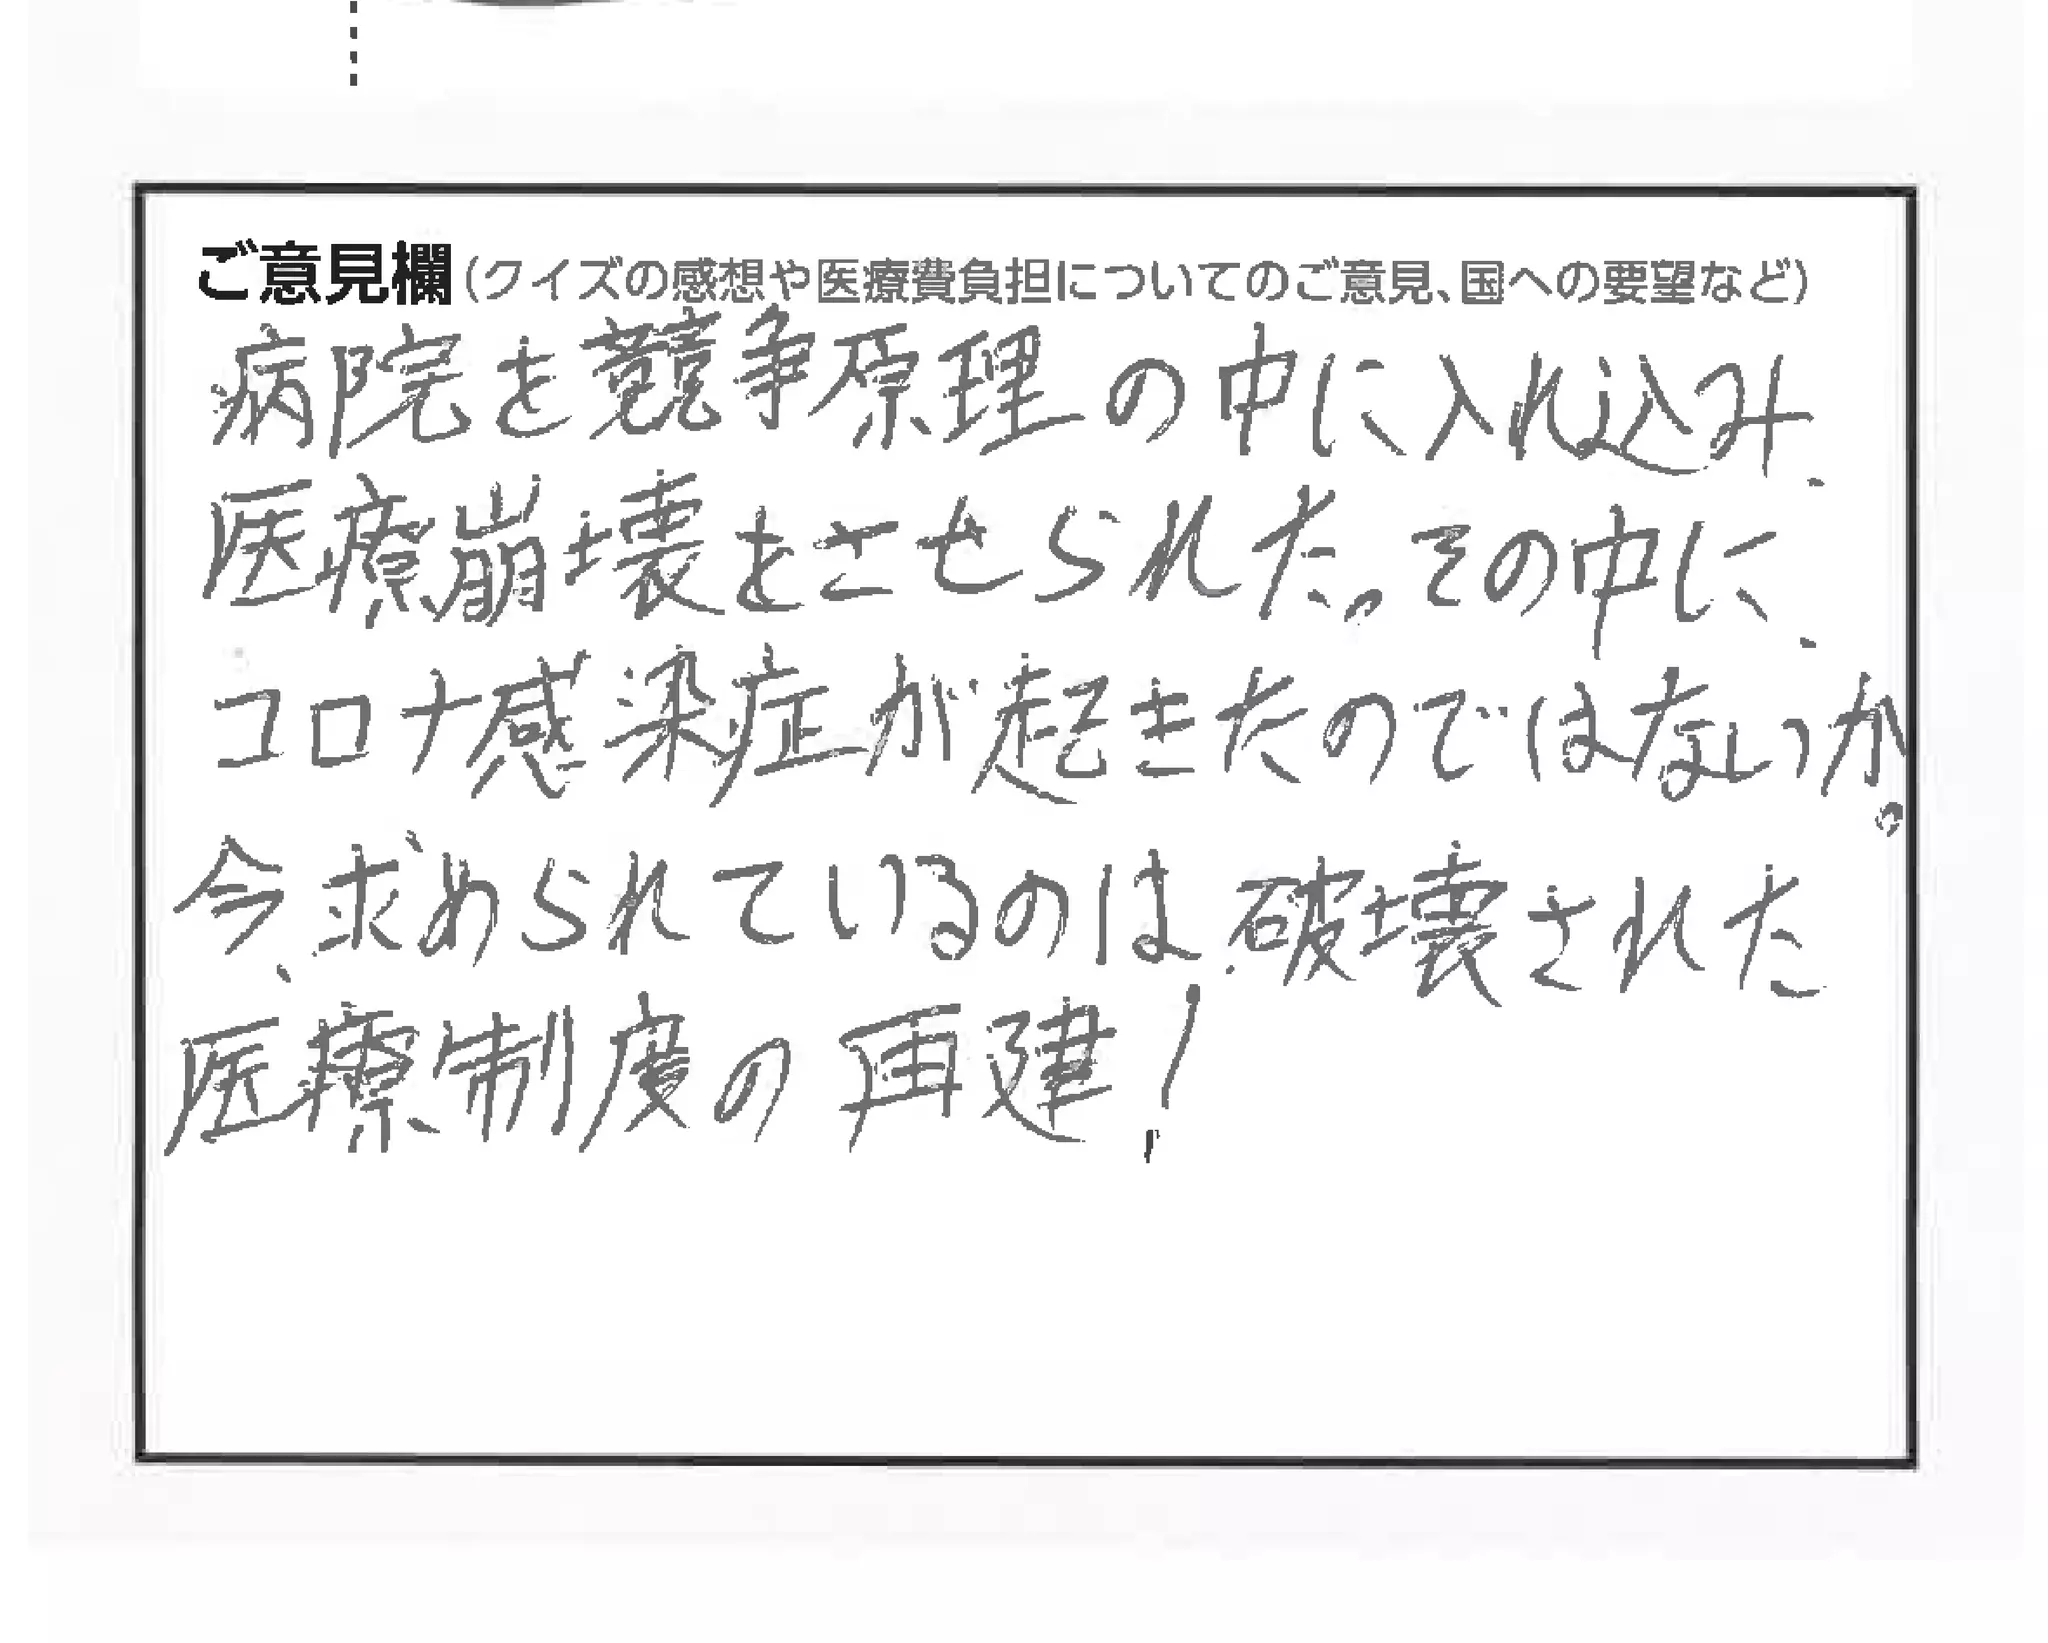 ご意見欄(クイズの感想や医療費負担についてのご意見、国への要望など)
病院を競争原理の中に入れ込み、
医療崩壊をさせられた。その中に、
コロナ感染症が起きたのではないか。
今、求められているのは、破壊された
医療制度の再建!